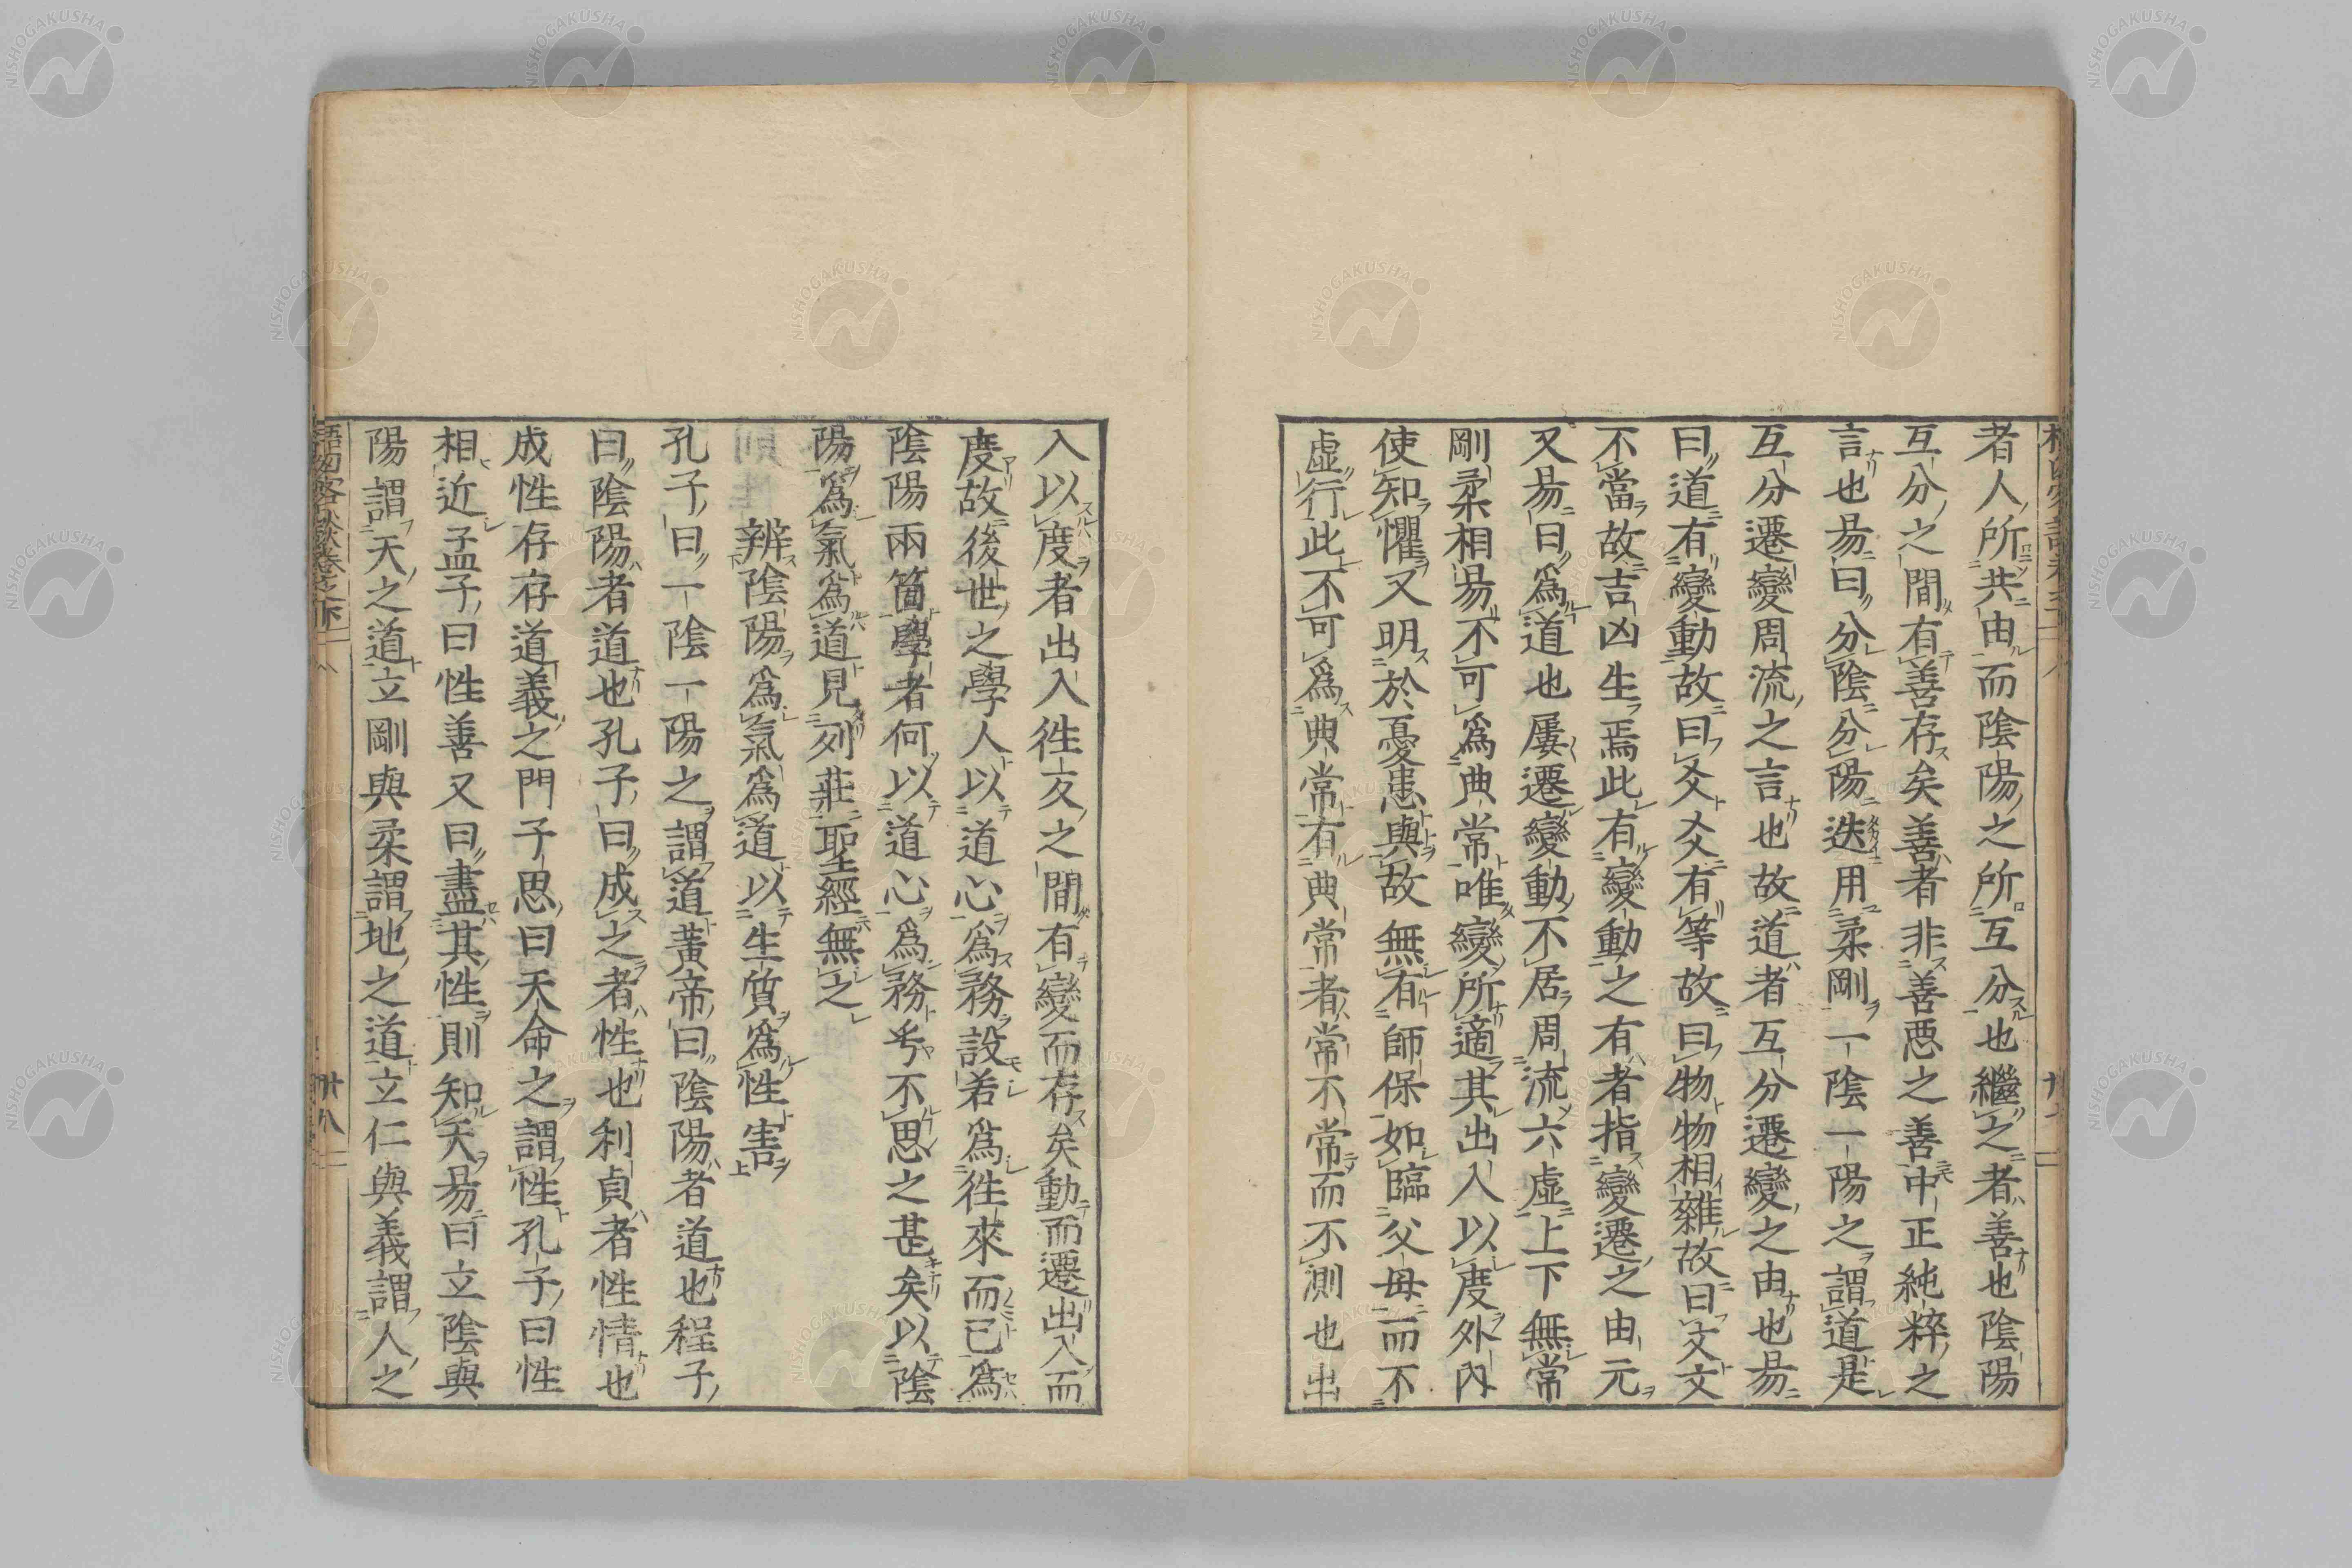 者人所共由而陰陽之所互分也繼之者善也陰陽
互分之間有善存矣善者非善惡之善中正純粹之
言也易曰分陰分陽迭用柔剛一陰一陽之謂道是
互分遷變周流之言也故道者互分遷變之由也易
曰道有變動故曰爻爻有等故曰物物相雜故曰文文
不當故吉凶生焉此有變動之有者指變遷之由元
又易曰爲道也屢遷變動不居周流六虛上下無常
剛柔相易不可爲典常唯變所適其出入以度外內
使知懼又明於憂患與故無有師保如臨父母而不
虛行此不可爲典常有典常者常不常而不測也出
入以度者出入徃反之間有變而存矣動而遷出入而
度故後世之學人以道心爲務設若爲徃來而已爲
陰陽兩箇學者何以道心爲務乎不思之甚矣以陰
陽爲氣爲道見列莊聖經無之
辨陰陽爲氣爲道以生質爲性害
孔子曰一陰一陽之謂道黃帝曰陰陽者道也程子
曰陰陽者道也孔子曰成之者性也利貞者性情也
成性存存道義之門子思曰天命之謂性孔子曰性
相近孟子曰性善又曰盡其性則知天易曰立陰與
陽謂天之道立剛與柔謂地之道立仁與義謂人之
NISHOGAKUSHA